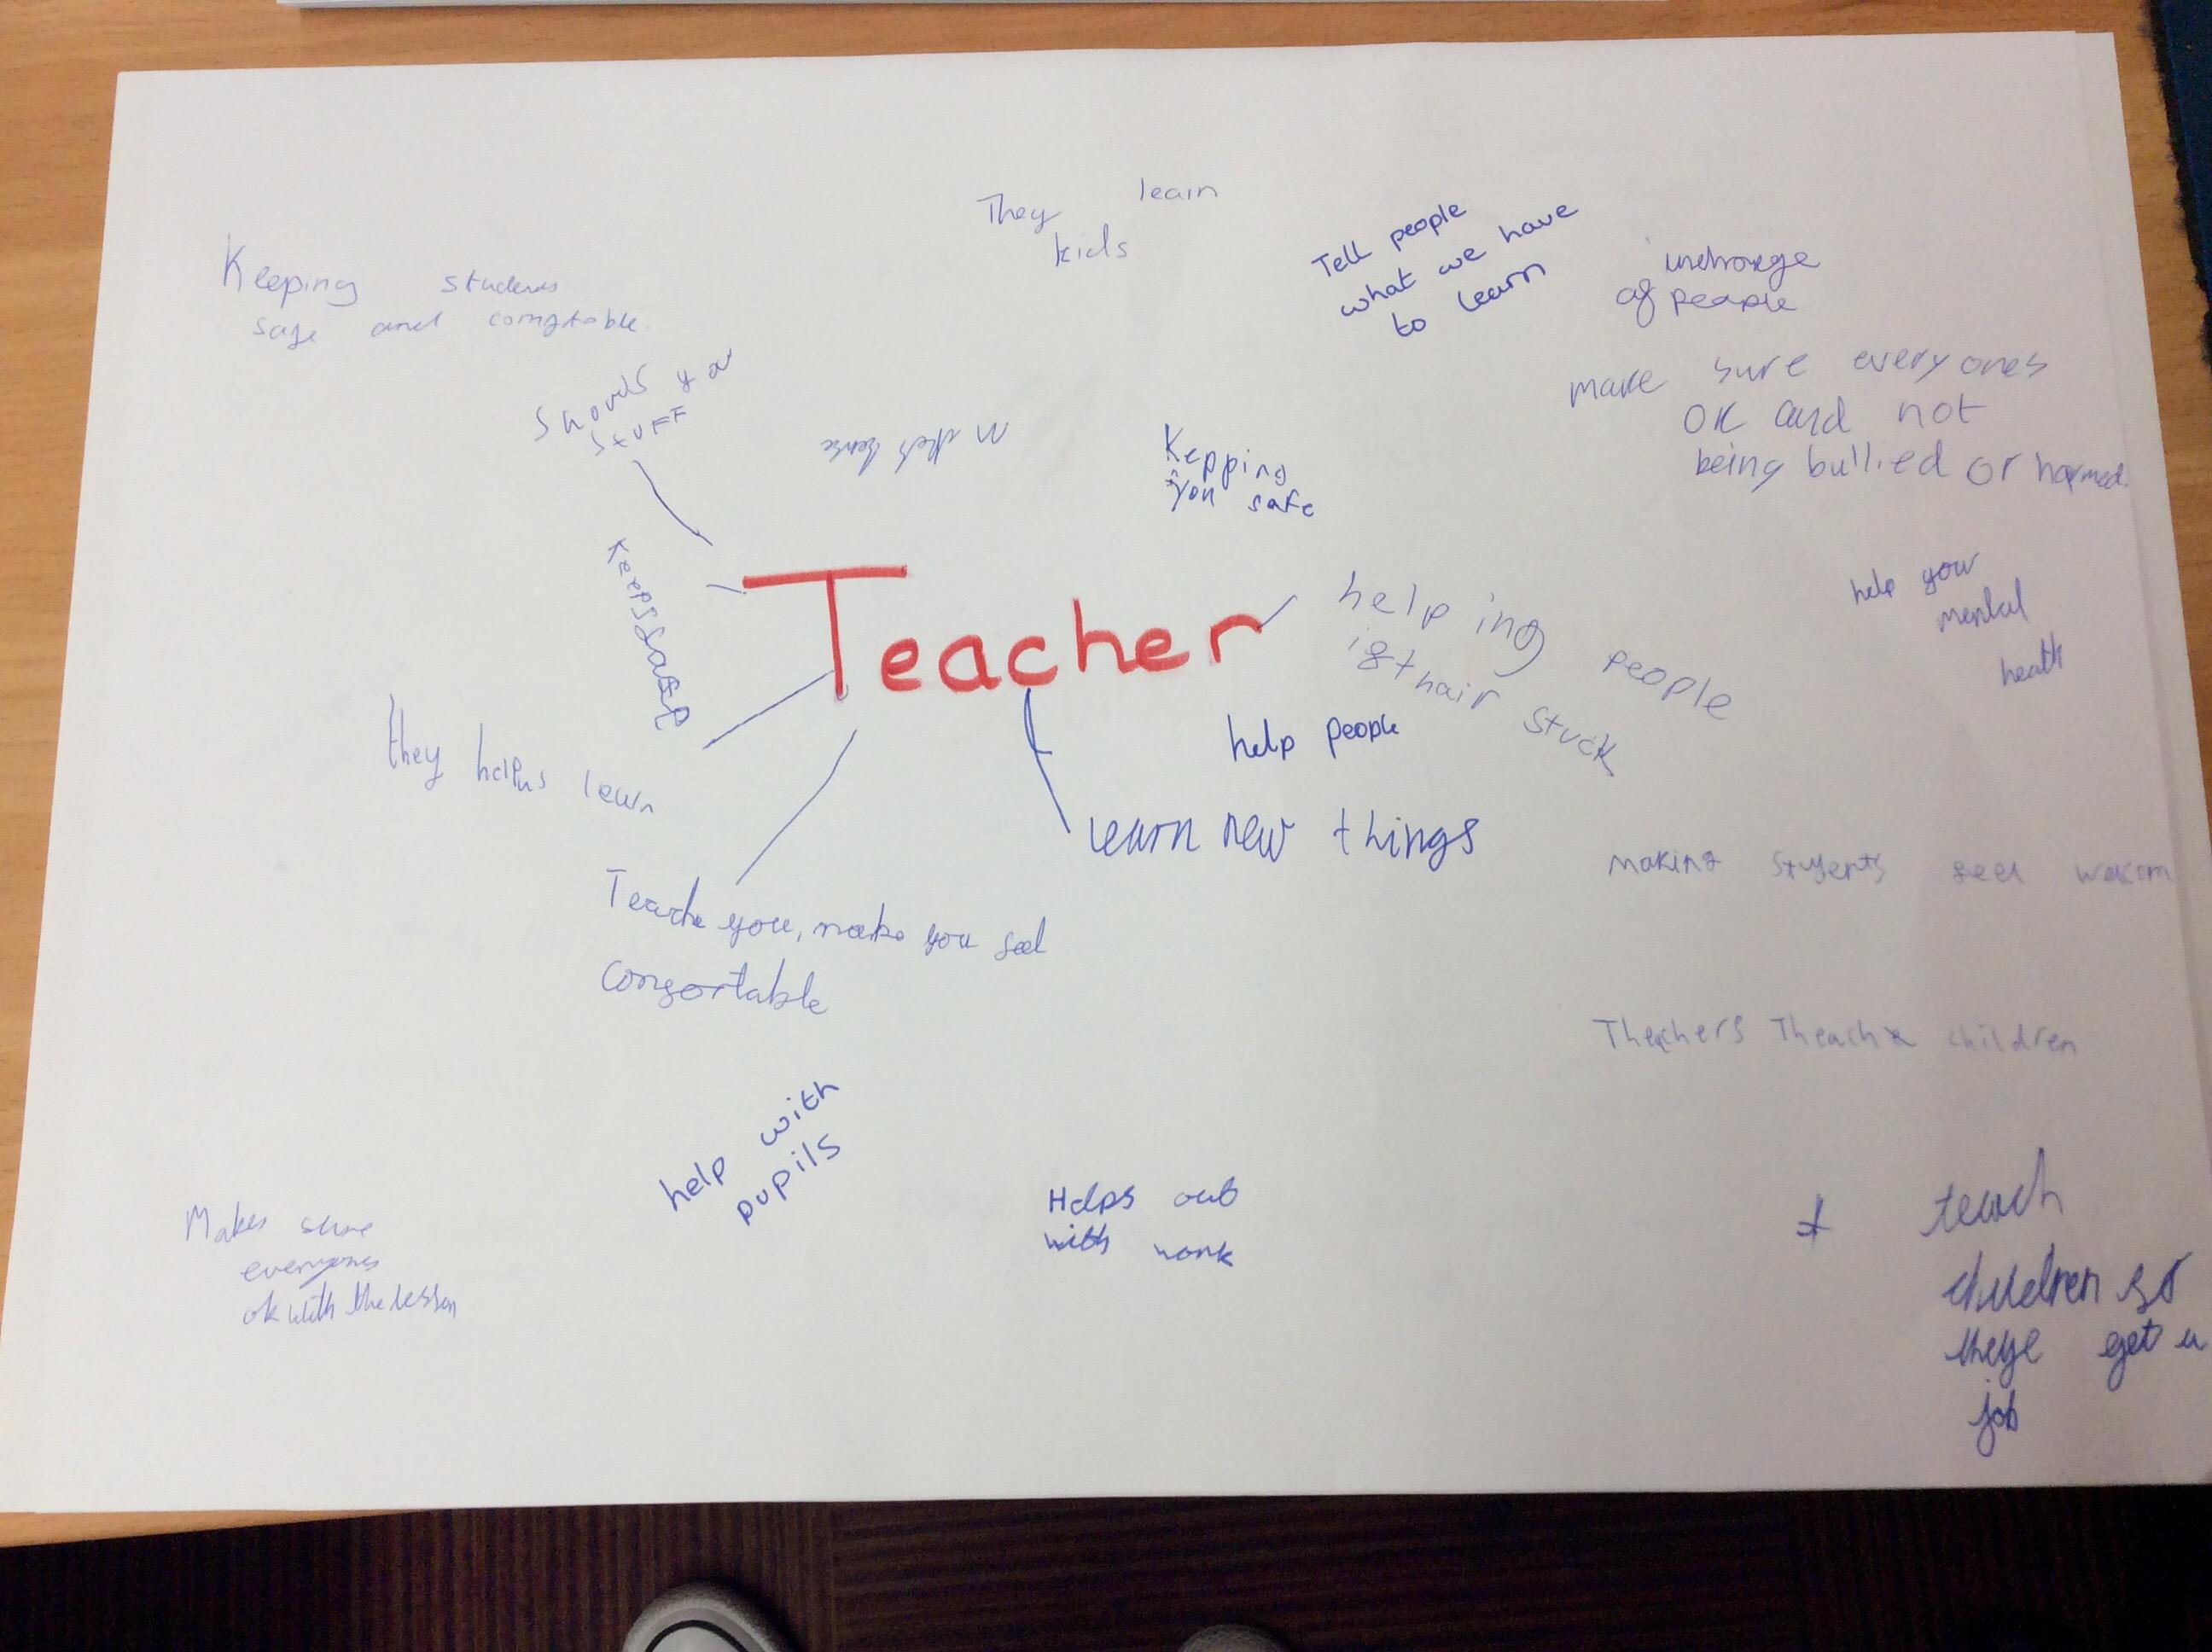 They learn
kids
Tell people
what we have
to learn
incharge
of people
Keeping students
safe and comftable.
make sure everyones
OK and not
being bullied or harmed.
Shows ya
STUFF
Kepping
you safe
help your
mental
health
Keeps safe
Teacher
helping people
if thair stuck
help people
they help us learn
learn new things
Teache you, make you feel
comfortable
making stuyents feel welcom
Theachers Theach children
help with
pupils
Helps out
with work
Makes sure
everyones
ok with the lesson
teach
children so
theye get a
job